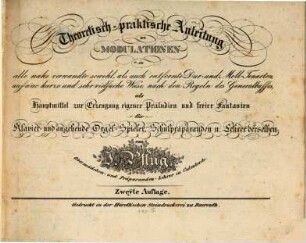 Theoretisch-praktische Anleitung
zu
MODULATIONEN
in
alle nahe verwandte sowohl, als auch entfernte Dur- und Moll-Tonarten
auf eine kurze und sehr einfache Weise, nach den Regeln des Generalbasses,
als
Hauptmittel zur Erzeugung eigener Präludien und freier Fantasien
für
Klavier- und angehende Orgel-Spieler, Schulpräparanden u. Lehrer derselben,
von
J. Pflug
und Präparanden-Lehrer in
Zweyte Auflage.
Gedruckt in der Höreth'schen Steindruckerei zu Bayreuth.